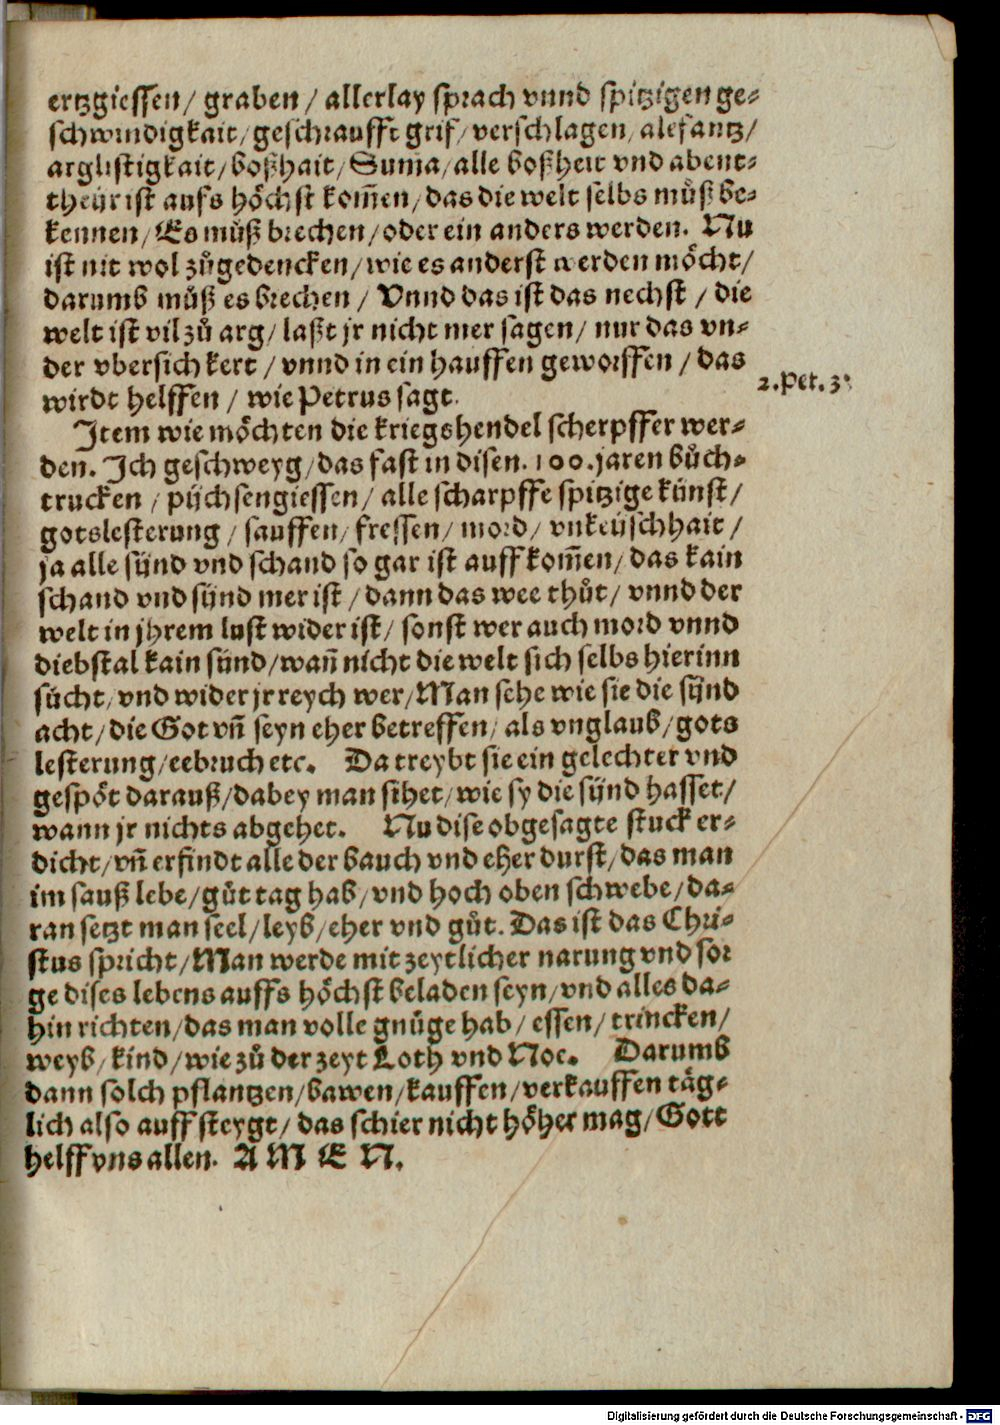 ertzgiessen/ graben/ allerlay sprach vnnd spitzigen ge-
schwindigkait/ geschraufft grif/ verschlagen/ alefantz/
arglistigkait/ boßhait/ Suma/ alle boßheit vnd abent-
theür ist aufs höchst kom̃en/ das die welt selbs můß be-
kennen/ Es můß brechen/ oder ein anders werden. Nu
ist nit wol zůgedencken/ wie es anderst werden möcht/
darumb můß es brechen/ Vnnd das ist das nechst/ die
welt ist vil zů arg/ laßt jr nicht mer sagen/ nur das vn-
der vbersich kert/ vnnd in ein hauffen geworffen/ das
wirdt helffen/ wie Petrus sagt.
2. Pet. 3.
Item wie möchten die kriegshendel scherpffer wer-
den. Ich geschweyg/ das fast in disen. 100. jaren bůch-
trucken/ püchsengiessen/ alle scharpffe spitzige künst/
gotslesterung/ sauffen/ fressen/ mord/ vnkeüschhait/
ja alle sünd vnd schand so gar ist auff kom̃en/ das kain
schand vnd sünd mer ist/ dann das wee thůt/ vnnd der
welt in jhrem lust wider ist/ sonst wer auch mord vnnd
diebstal kain sünd/ wañ nicht die welt sich selbs hierinn
sücht/ vnd wider jr reych wer/ Man sehe wie sie die sünd
acht/ die Got vñ seyn eher betreffen/ als vnglaub/ gots
lesterung/ eebruch etc. Da treybt sie ein gelechter vnd
gespöt darauß/ dabey man sihet/ wie sy die sünd hasset/
wann jr nichts abgehet. Nu dise obgesagte stuck er-
dicht/ vñ erfindt alle der bauch vnd eher durst/ das man
im sauß lebe/ gůt tag hab/ vnd hoch oben schwebe/ da-
ran setzt man seel/ leyb/ eher vnd gůt. Das ist das Chri-
stus spricht/ Man werde mit zeytlicher narung vnd sor
ge dises lebens auffs höchst beladen seyn/ vnd alles da-
hin richten/ das man volle gnüge hab/ essen/ trincken/
weyb/ kind/ wie zů der zeyt Loth vnd Noe. Darumb
dann solch pflantzen/ bawen/ kauffen/ verkauffen täg-
lich also auff steygt/ das schier nicht höher mag/ Gott
helff vns allen. A M E N.
Digitalisierung gefördert durch die Deutsche Forschungsgemeinschaft - DFG